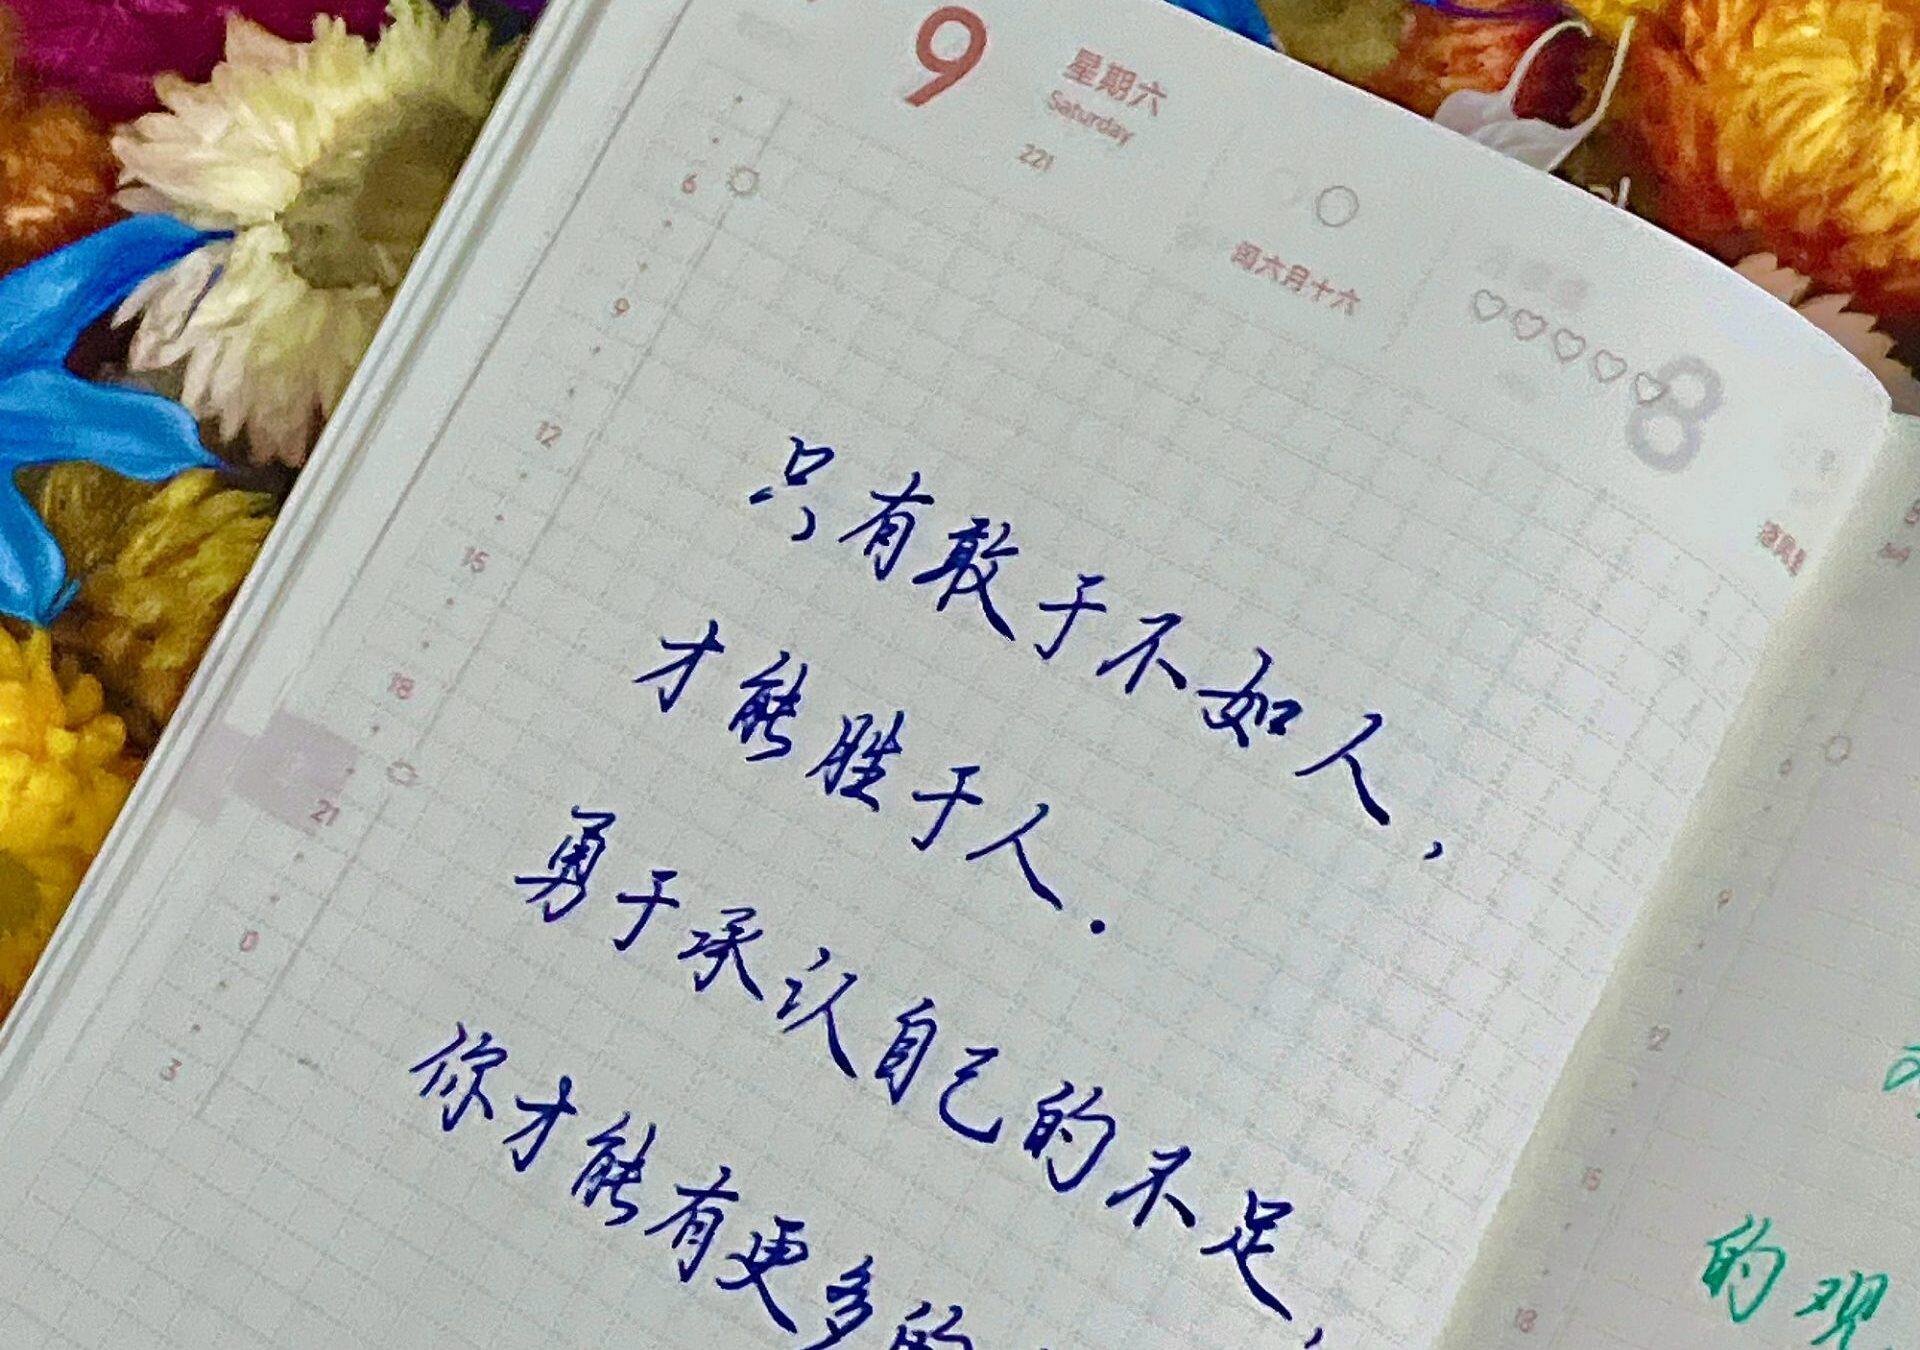 9
星期六
Saturday
221
闰六月十六
8
6
9
12
15
18
21
0
3
只有敢于不如人,
才能胜于人.
勇于承认自己的不足,
你才能有更多的
9
12
15
18
的观